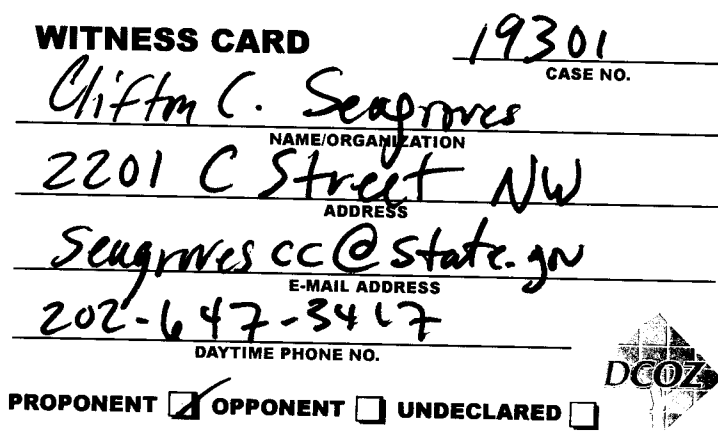 WITNESS CARD
19301
CASE NO.
Clifton C. Seagroves
NAME/ORGANIZATION
2201 C Street NW
ADDRESS
Seagroves cc@state.gov
E-MAIL ADDRESS
202-647-3417
DAYTIME PHONE NO.
DCOZ
PROPONENT OPPONENT UNDECLARED